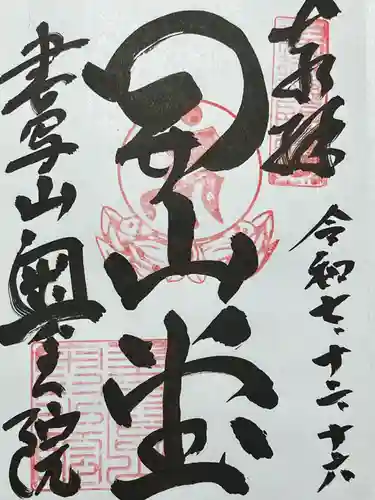 奉拝
令和七、十二、十六
開山堂
書写山奥之院